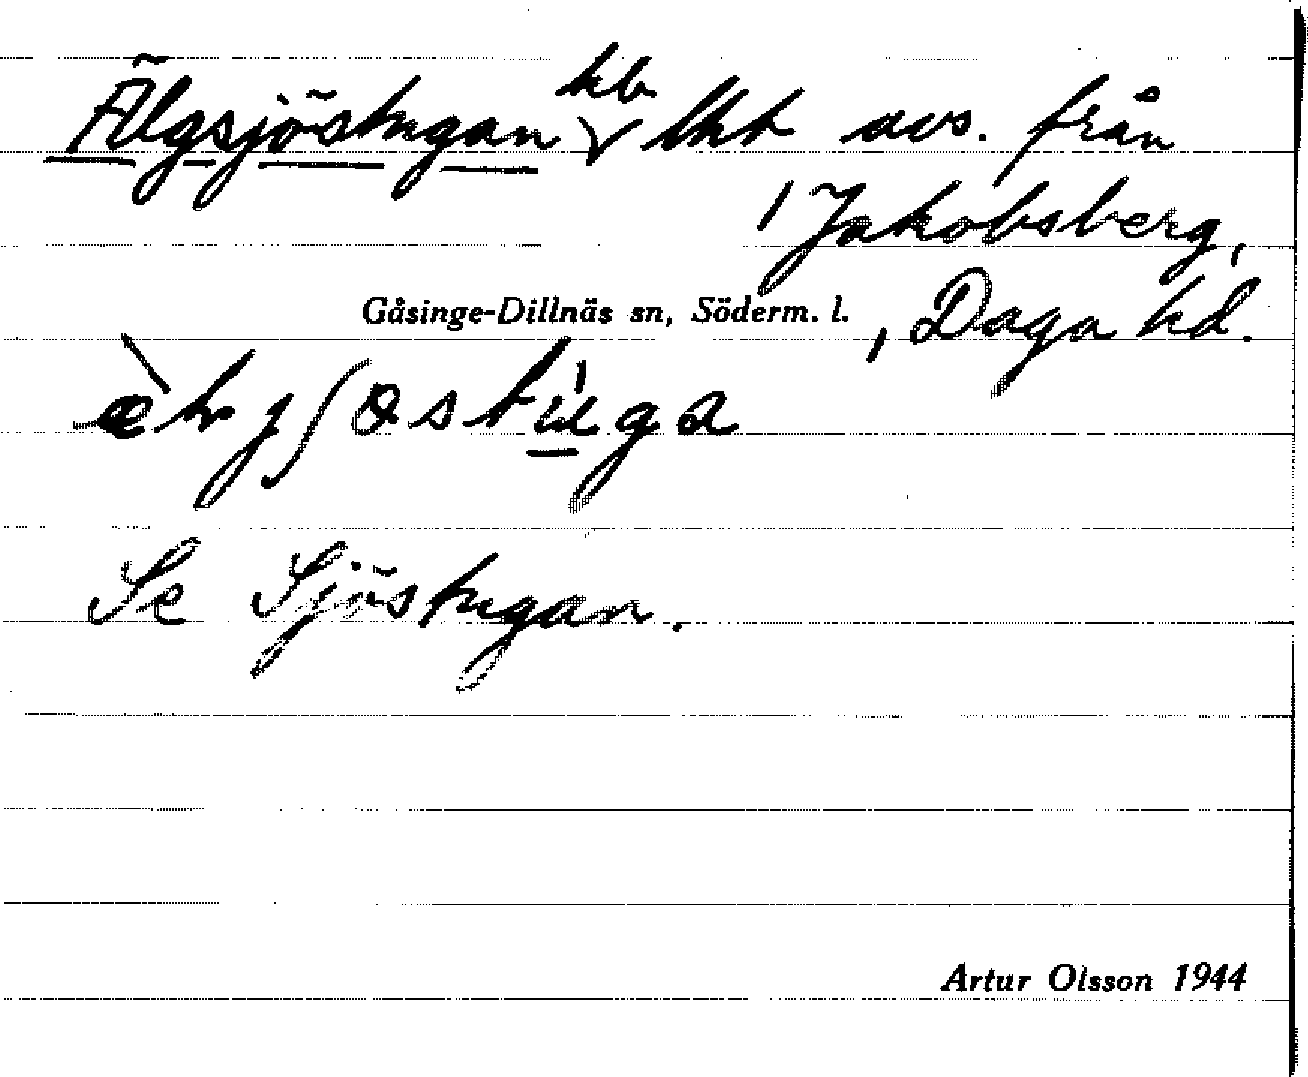 Älgsjöstugan hb lht avs. från
Jakobsberg,
Gåsinge-Dillnäs sn, Söderm. l. , Daga hd.
Se Sjöstugan.
Artur Olsson 1944